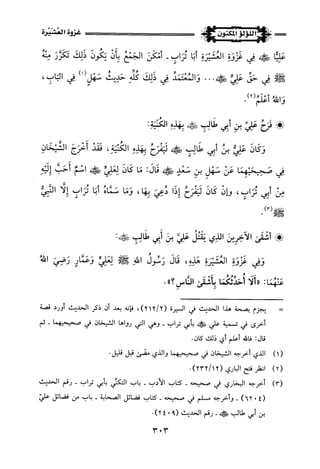 اللؤلؤ المكنون
غزوة العُشَيْرَة
عَلِيًّا ﷺ فِي غَزْوَةِ العُشَيْرَةِ أَبَا تُرَابٍ - أَمْكَنَ الجَمْعُ بِأَنْ يَكُونَ ذَلِكَ تَكَرَّرَ مِنْهُ
ﷺ فِي حَقِّ عَلِيٍّ ... وَالمُعْتَمَدُ فِي ذَلِكَ كُلِّهِ حَدِيثُ سَهْلٍ(١) فِي البَابِ،
وَاللهُ أَعْلَمُ(٢).
فَرَحُ عَلِيِّ بنِ أَبِي طَالِبٍ بِهَذِهِ الكُنْيَةِ:
وَكَانَ عَلِيُّ بنُ أَبِي طَالِبٍ لَيَفْرَحُ بِهَذِهِ الكُنْيَةِ، فَقَدْ أَخْرَجَ الشَّيْخَانِ
فِي صَحِيحَيْهِمَا عَنْ سَهْلِ بنِ سَعْدٍ قَالَ: مَا كَانَ لِعَلِيٍّ اسْمٌ أَحَبَّ إِلَيْهِ
مِنْ أَبِي تُرَابٍ، وإنْ كَانَ لَيَفْرَحُ إِذَا دُعِيَ بِهَا، وَمَا سَمَّاهُ أَبَا تُرَابٍ إِلَّا النَّبِيُّ
ﷺ(٣).
أَشْقَى الآخِرِينَ الذِي يَقْتُلُ عَلِيَّ بنَ أَبِي طَالِبٍ:
وَفِي غَزْوَةِ العُشَيْرَةِ هَذِهِ، قَالَ رَسُولُ اللهِ ﷺ لِعَلِيٍّ وَعَمَّارٍ رَضِيَ اللهُ
عَنْهُمَا: «أَلَا أُحَدِّثُكُمَا بِأَشْقَى النَّاسِ؟».
= يجزم بصحة هذا الحديث في السيرة (٢١٢/٢)، فإنه بعد أن ذكر الحديث أورد قصة
أخرى في تسمية علي بأبي تراب - وهي التي رواها الشيخان في صحيحيهما - ثم
قال: فالله أعلم أي ذلك كان.
(١) الذي أخرجه الشيخان في صحيحيهما والذي مضى قبل قليل.
(٢) انظر فتح الباري (٢٣٢/١٢).
(٣) أخرجه البخاري في صحيحه - كتاب الأدب - باب التكنّي بأبي تراب - رقم الحديث
(٦٢٠٤) - وأخرجه مسلم في صحيحه - كتاب فضائل الصحابة - باب من فضائل علي
بن أبي طالب - رقم الحديث (٢٤٠٩).
٣٠٣